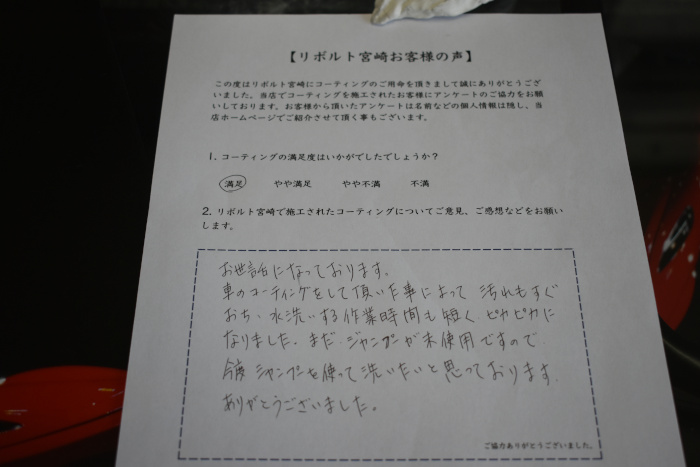 【リボルト宮崎お客様の声】
この度はリボルト宮崎にコーティングのご用命を頂きまして誠にありがとうござ
いました。当店でコーティングを施工されたお客様にアンケートのご協力をお願
いしております。お客様から頂いたアンケートは名前などの個人情報は隠し、当
店ホームページでご紹介させて頂く事もございます。
1. コーティングの満足度はいかがでしたでしょうか？
満足 やや満足 やや不満 不満
2. リボルト宮崎で施工されたコーティングについてご意見、ご感想などをお願い
します。
お世話になっております。
車のコーティングをして頂いた事によって 汚れもすぐ
おち、水洗いする作業時間も短く、ピカピカに
なりました。まだ、シャンプーが未使用ですので、
今度 シャンプーを使って洗いたいと思っております。
ありがとうございました。
ご協力ありがとうございました。